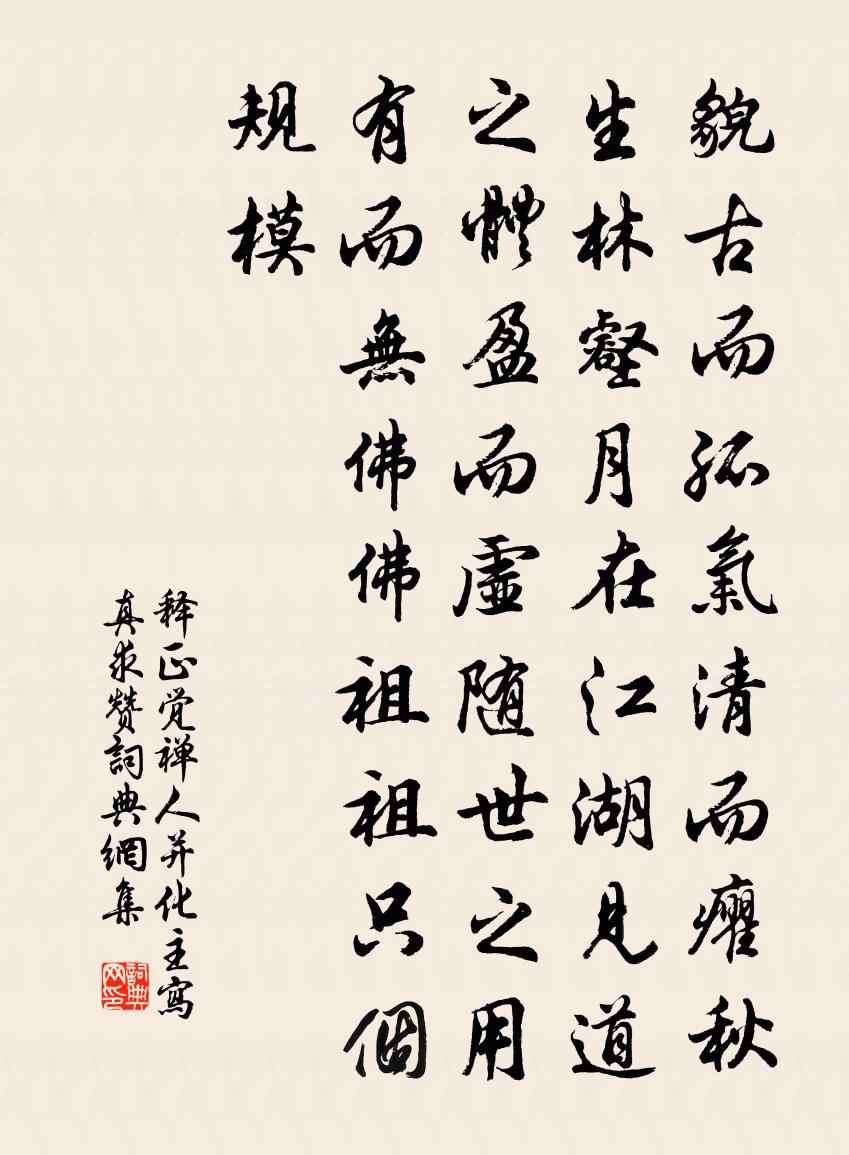 貌古而孤氣清而癯秋
生林壑月在江湖見道
之體盈而虛随世之用
有而無佛佛祖祖只個
規模
释正觉禅人并化主寫
真求赞詞典網集
詞典網印